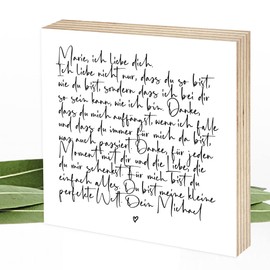 Marie, ich liebe dich.
Ich liebe nicht nur, dass du so bist,
wie du bist, sondern dass ich bei dir
so sein kann, wie ich bin. Danke,
dass du mich auffängst, wenn ich falle
und dass du immer für mich da bist,
was auch passiert. Danke, für jeden
Moment mit dir und die Liebe, die
du mir schenkst. Für mich bist du
einfach Alles. Du bist meine kleine
perfekte Welt. Dein Michael